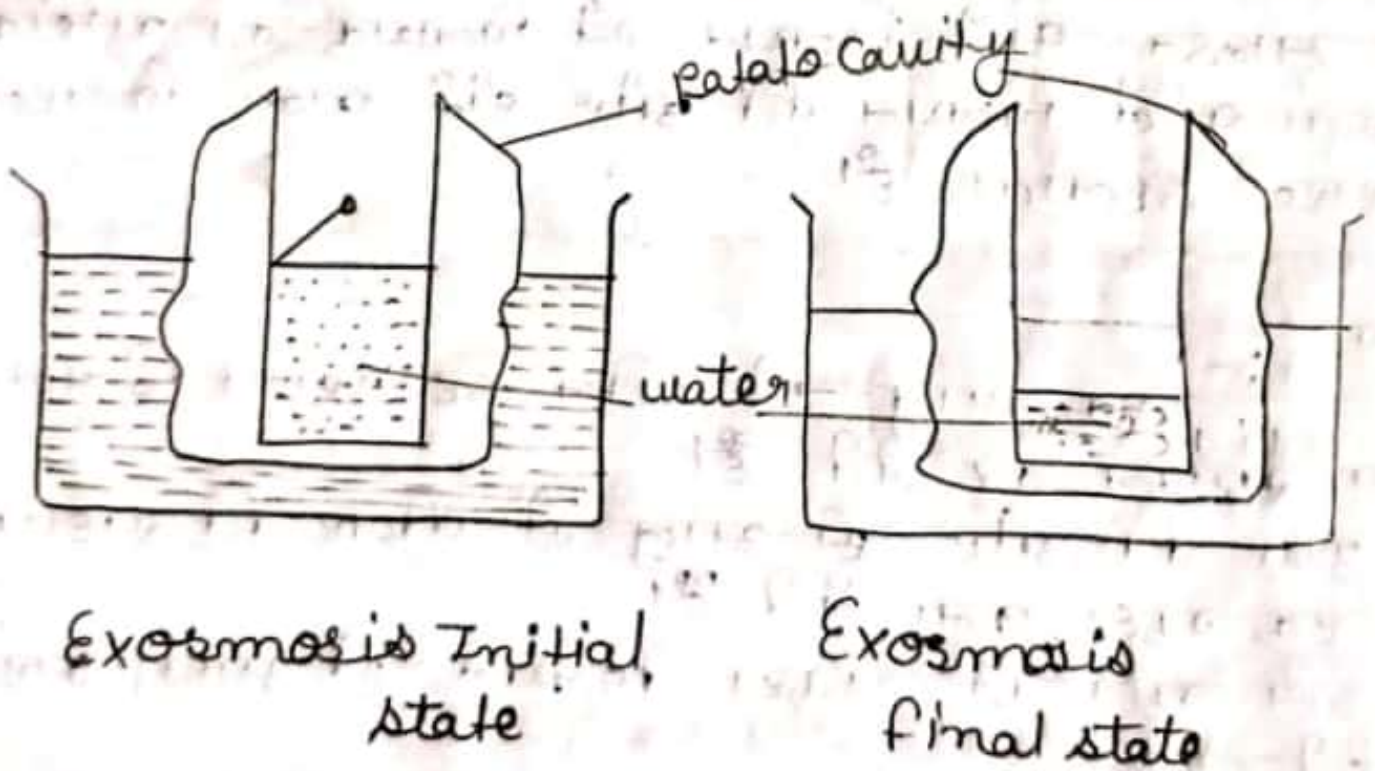 Potato Cavity
water
Exosmosis Initial
state
Exosmosis
final state